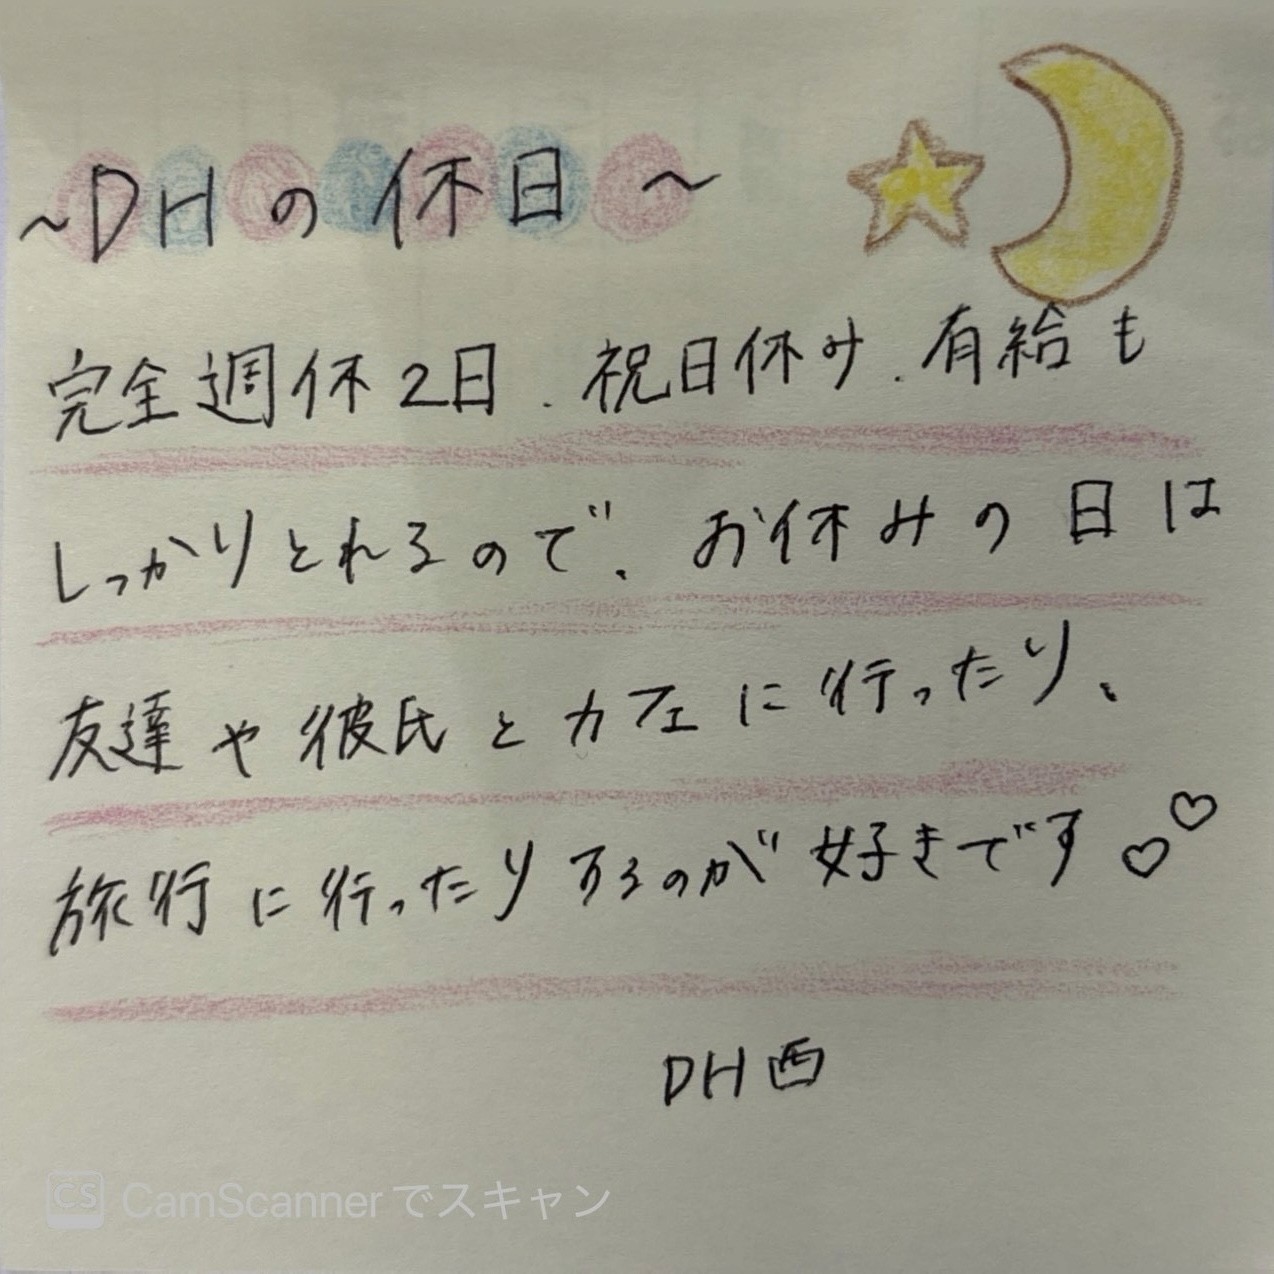 ～DHの休日～
完全週休2日.祝日休み.有給も
しっかりとれるので、お休みの日は
友達や彼氏とカフェに行ったり、
旅行に行ったりするのが好きです♡♡
DH西
CS CamScannerでスキャン